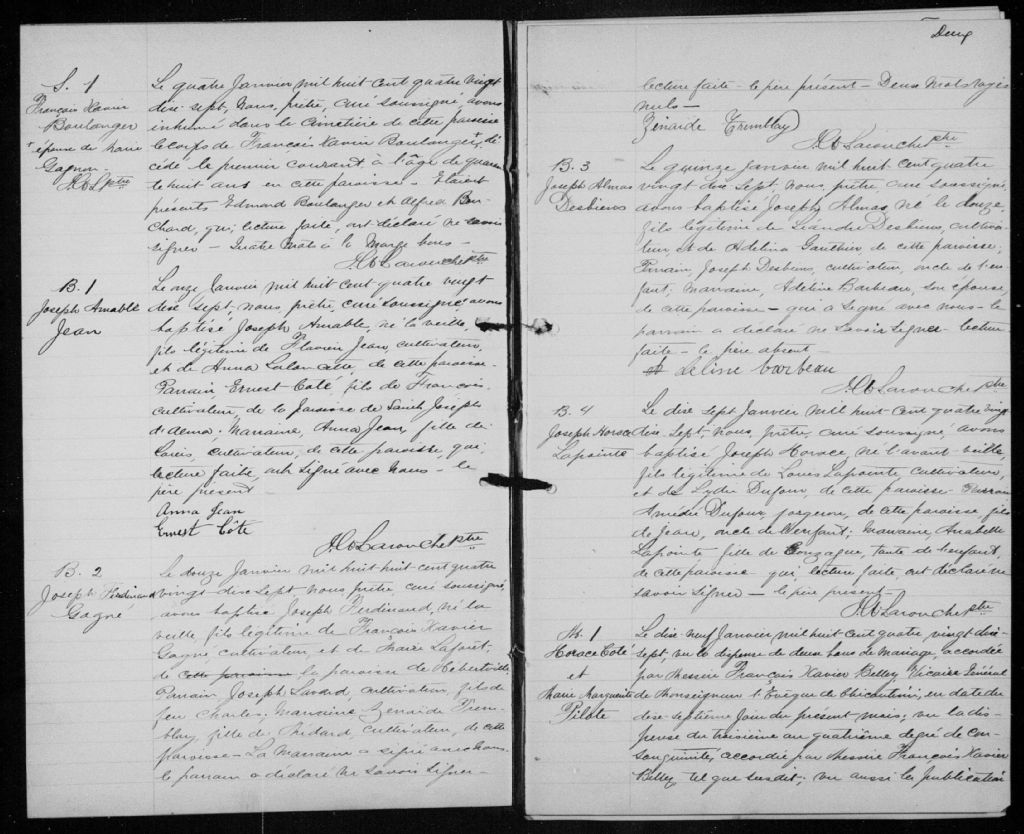 S. 1
François Xavier
Boulanger
+ épouse de Marie
Gagnon.
Le quatre Janvier mil huit cent quatre vingt
dise sept, Nous, prêtre, curé soussigné, avons
inhumé dans le Cimetière de cette paroisse
le corps de François Xavier Boulanger, + dé
cédé le premier courant à l'âge de quaran
te huit ans en cette paroisse - Etaient
présents Edmard Boulanger et Alfred Bou
chard, qui, lecture faite, ont déclaré ne savoir
signer - Quatre mots à la Marge bons -
Larouche ptre
B. 1
Joseph Amable
Jean
Le onze Janvier mil huit cent quatre vingt
dise sept, nous, prêtre, curé soussigné, avons
baptisé Joseph Amable, né la veille,
fils légitime de Flavien Jean, cultivateur,
et de Anna Lalancette, de cette paroisse.
Parrain, Ernest Coté, fils de François,
cultivateur, de la Paroisse de Saint Joseph
d'Alma; Marraine, Anna Jean, fille de
Louis, cultivateur, de cette paroisse, qui,
lecture faite, ont signé avec nous - le
père présent
Anna Jean
Ernest Côte
Larouche ptre
B. 2
Joseph Ferdinand
Gagné
Le douze Janvier mil huit huit cent quatre
vingt dise Sept, nous, prêtre, curé soussigné,
avons baptisé Joseph Ferdinand, né la
veille, fils légitime de François Xavier
Gagné, cultivateur, et de Marie Laforêt,
de cette paroisse la paroisse de Hébertville,
Parrain Joseph Savard, cultivateur, fils de
feu Charles; Marraine Zenaïde Trem
blay, fille de Phidard, cultivateur, de cette
paroisse - La Marraine a signé avec nous
le parrain a déclaré ne savoir signer -
Deux
lecture faite - le père présent - Deux Mots rayés
nuls -
Zénaide Tremblay
Larouche ptre
B. 3
Joseph Almas
Desbiens
Le quinze Janvier mil huit cent quatre
vingt dise sept, nous, prêtre, curé soussigné,
avons baptisé Joseph Almas, né le douze,
fils légitime de Léandre Desbiens, cultiva-
teur, et de Adelina Gauthier, de cette paroisse;
Parrain, Joseph Desbiens, cultivateur, oncle de l'en-
fant; Marraine, Adeline Barbeau, son épouse
de cette paroisse - qui a signé avec nous - le
parrain a déclaré ne savoir signer - lecture
faite - le père absent -
Adeline barbeau
Larouche ptre
B. 4
Joseph Horace
Lapointe
Le dise sept Janvier mil huit cent quatre vingt
dise sept, nous, prêtre, curé soussigné, avons
baptisé Joseph Horace, né l'avant veille,
fils légitime de Louis Lapointe cultivateur,
et de Lydie Dufour, de cette paroisse - Parrain
Amédée Dufour, forgeron, de cette paroisse, fils
de Jean, oncle de l'enfant; Marraine, Anabelle
Lapointe fille de Gonzague, tante de l'enfant,
de cette paroisse - qui, lecture faite, ont déclaré ne
savoir signer - le père présent -
Larouche ptre
M. 1
Horace Coté
et
Marie Marguerite
Pilote
Le dise neuf Janvier, mil huit cent quatre vingt dise
sept, vu la dispense de deux bans de Mariage, accordée
par Messire François Xavier Belley, Vicaire Général
de Monseigneur l'Evêque de Chicoutimi, en date du
dise-septième jour du présent mois; vu la dis-
pense du troisième au quatrième degré de con-
sanguinité, accordée par Messire François Xavier
Belley tel que susdit; vu aussi la publication